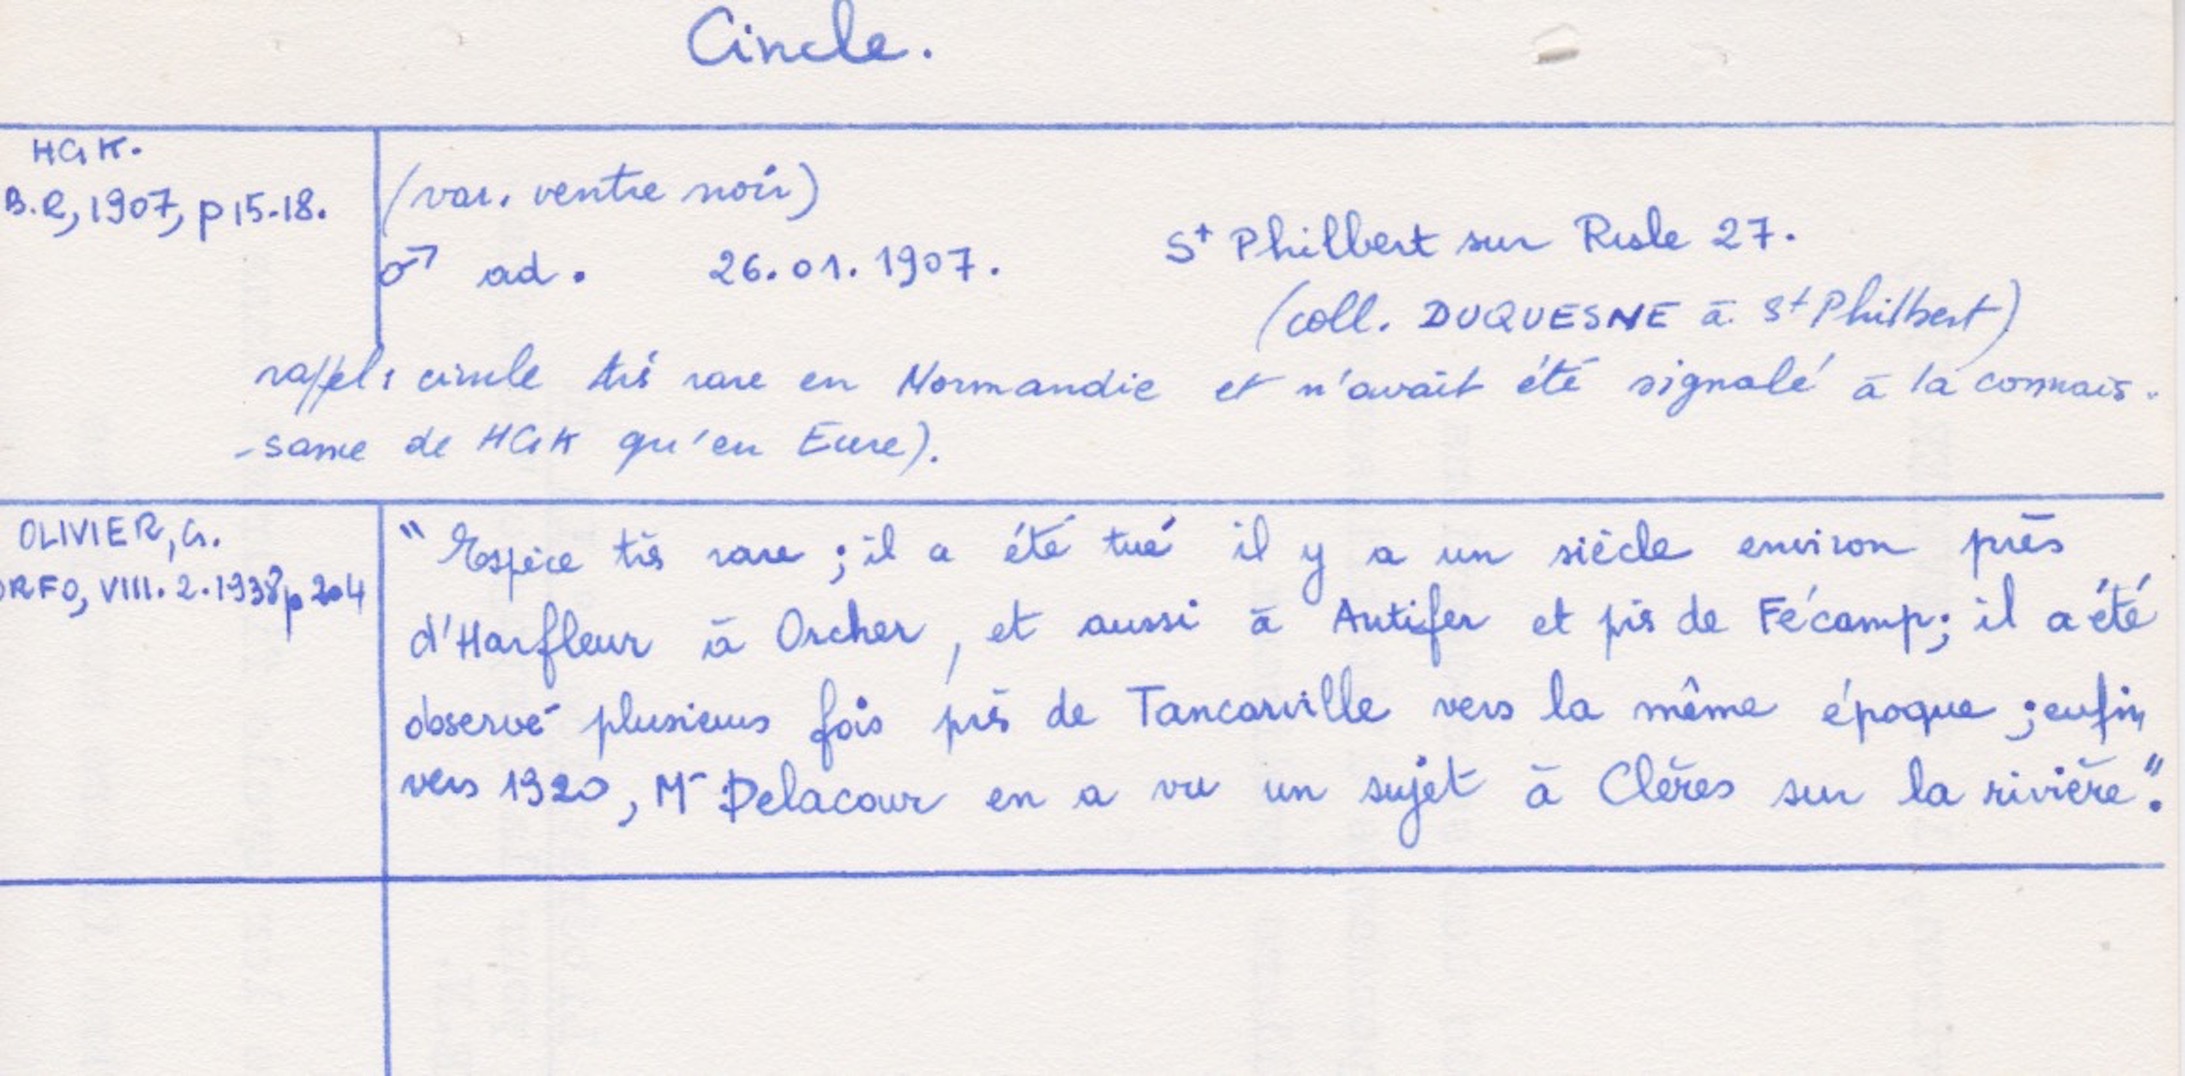 Cincle.
HGK.
B.R, 1907, p 15-18.
(var. ventre noir)
♂ ad. 26.01.1907. St Philbert sur Risle 27.
(coll. DUQUESNE à St Philbert)
rappel : cincle très rare en Normandie et n'avait été signalé à la connais-
-sance de HGK qu'en Eure).
OLIVIER, G.
ORFO, VIII. 2. 1938 p 204
"Espèce très rare ; il a été tué il y a un siècle environ près
d'Harfleur à Orcher, et aussi à Antifer et près de Fécamp ; il a été
observé plusieurs fois près de Tancarville vers la même époque ; enfin
vers 1920, Mr Delacour en a vu un sujet à Clères sur la rivière".